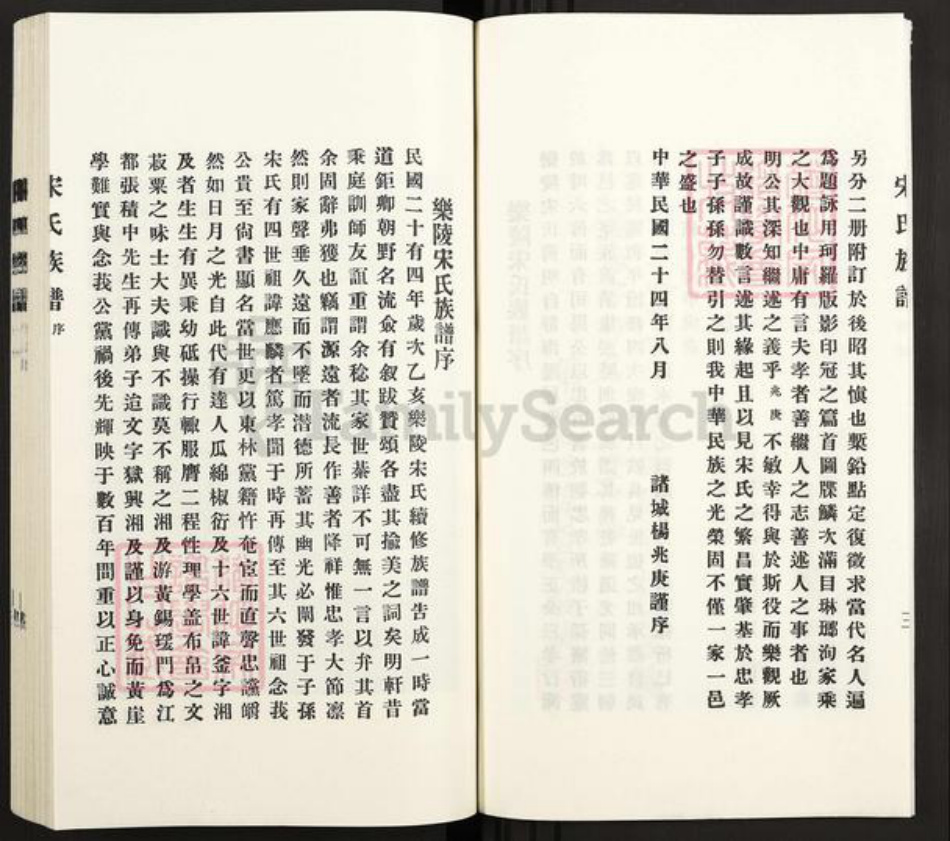 宋氏族譜
三
另分二册附訂於後昭其愼也槧鉛點定復徵求當代名人遍
爲題詠用珂羅版影印冠之篇首圖牒鱗次滿目琳瑯洵家乘
之大觀也中庸有言夫孝者善繼人之志善述人之事者也
明公其深知繼述之義乎兆庚不敏幸得與於斯役而樂觀厥
成故謹識數言述其緣起且以見宋氏之繁昌實肇基於忠孝
子子孫孫勿替引之則我中華民族之光榮固不僅一家一邑
之盛也
中華民國二十四年八月
諸城楊兆庚謹序
樂陵宋氏族譜序
民國二十有四年歲次乙亥樂陵宋氏續修族譜告成一時當
道鉅卿朝野名流僉有叙跋贊頌各盡其揄美之詞矣明軒昔
秉庭訓師友誼重謂余稔其家世綦詳不可無一言以弁其首
余固辭弗獲也竊謂源遠者流長作善者降祥惟忠孝大節凛
然則家聲垂久遠而不墜而潛德所蓄其幽光必闡發于子孫
宋氏有四世祖諱應麟者篤孝聞于時再傳至其六世祖念莪
公貴至尙書顯名當世更以東林黨籍忤奄宦而直聲忠讜皭
然如日月之光自此代有達人瓜綿椒衍及十六世諱釜字湘
及者生生有異秉幼砥操行輙服膺二程性理學蓋布帛之文
菽粟之味士大夫識與不識莫不稱之湘及游黃錫瑗門爲江
都張積中先生再傳弟子迨文字獄興湘及謹以身免而黃崖
學難實與念莪公黨禍後先輝映于數百年間重以正心誠意
宋氏族譜
序
FamilySearch